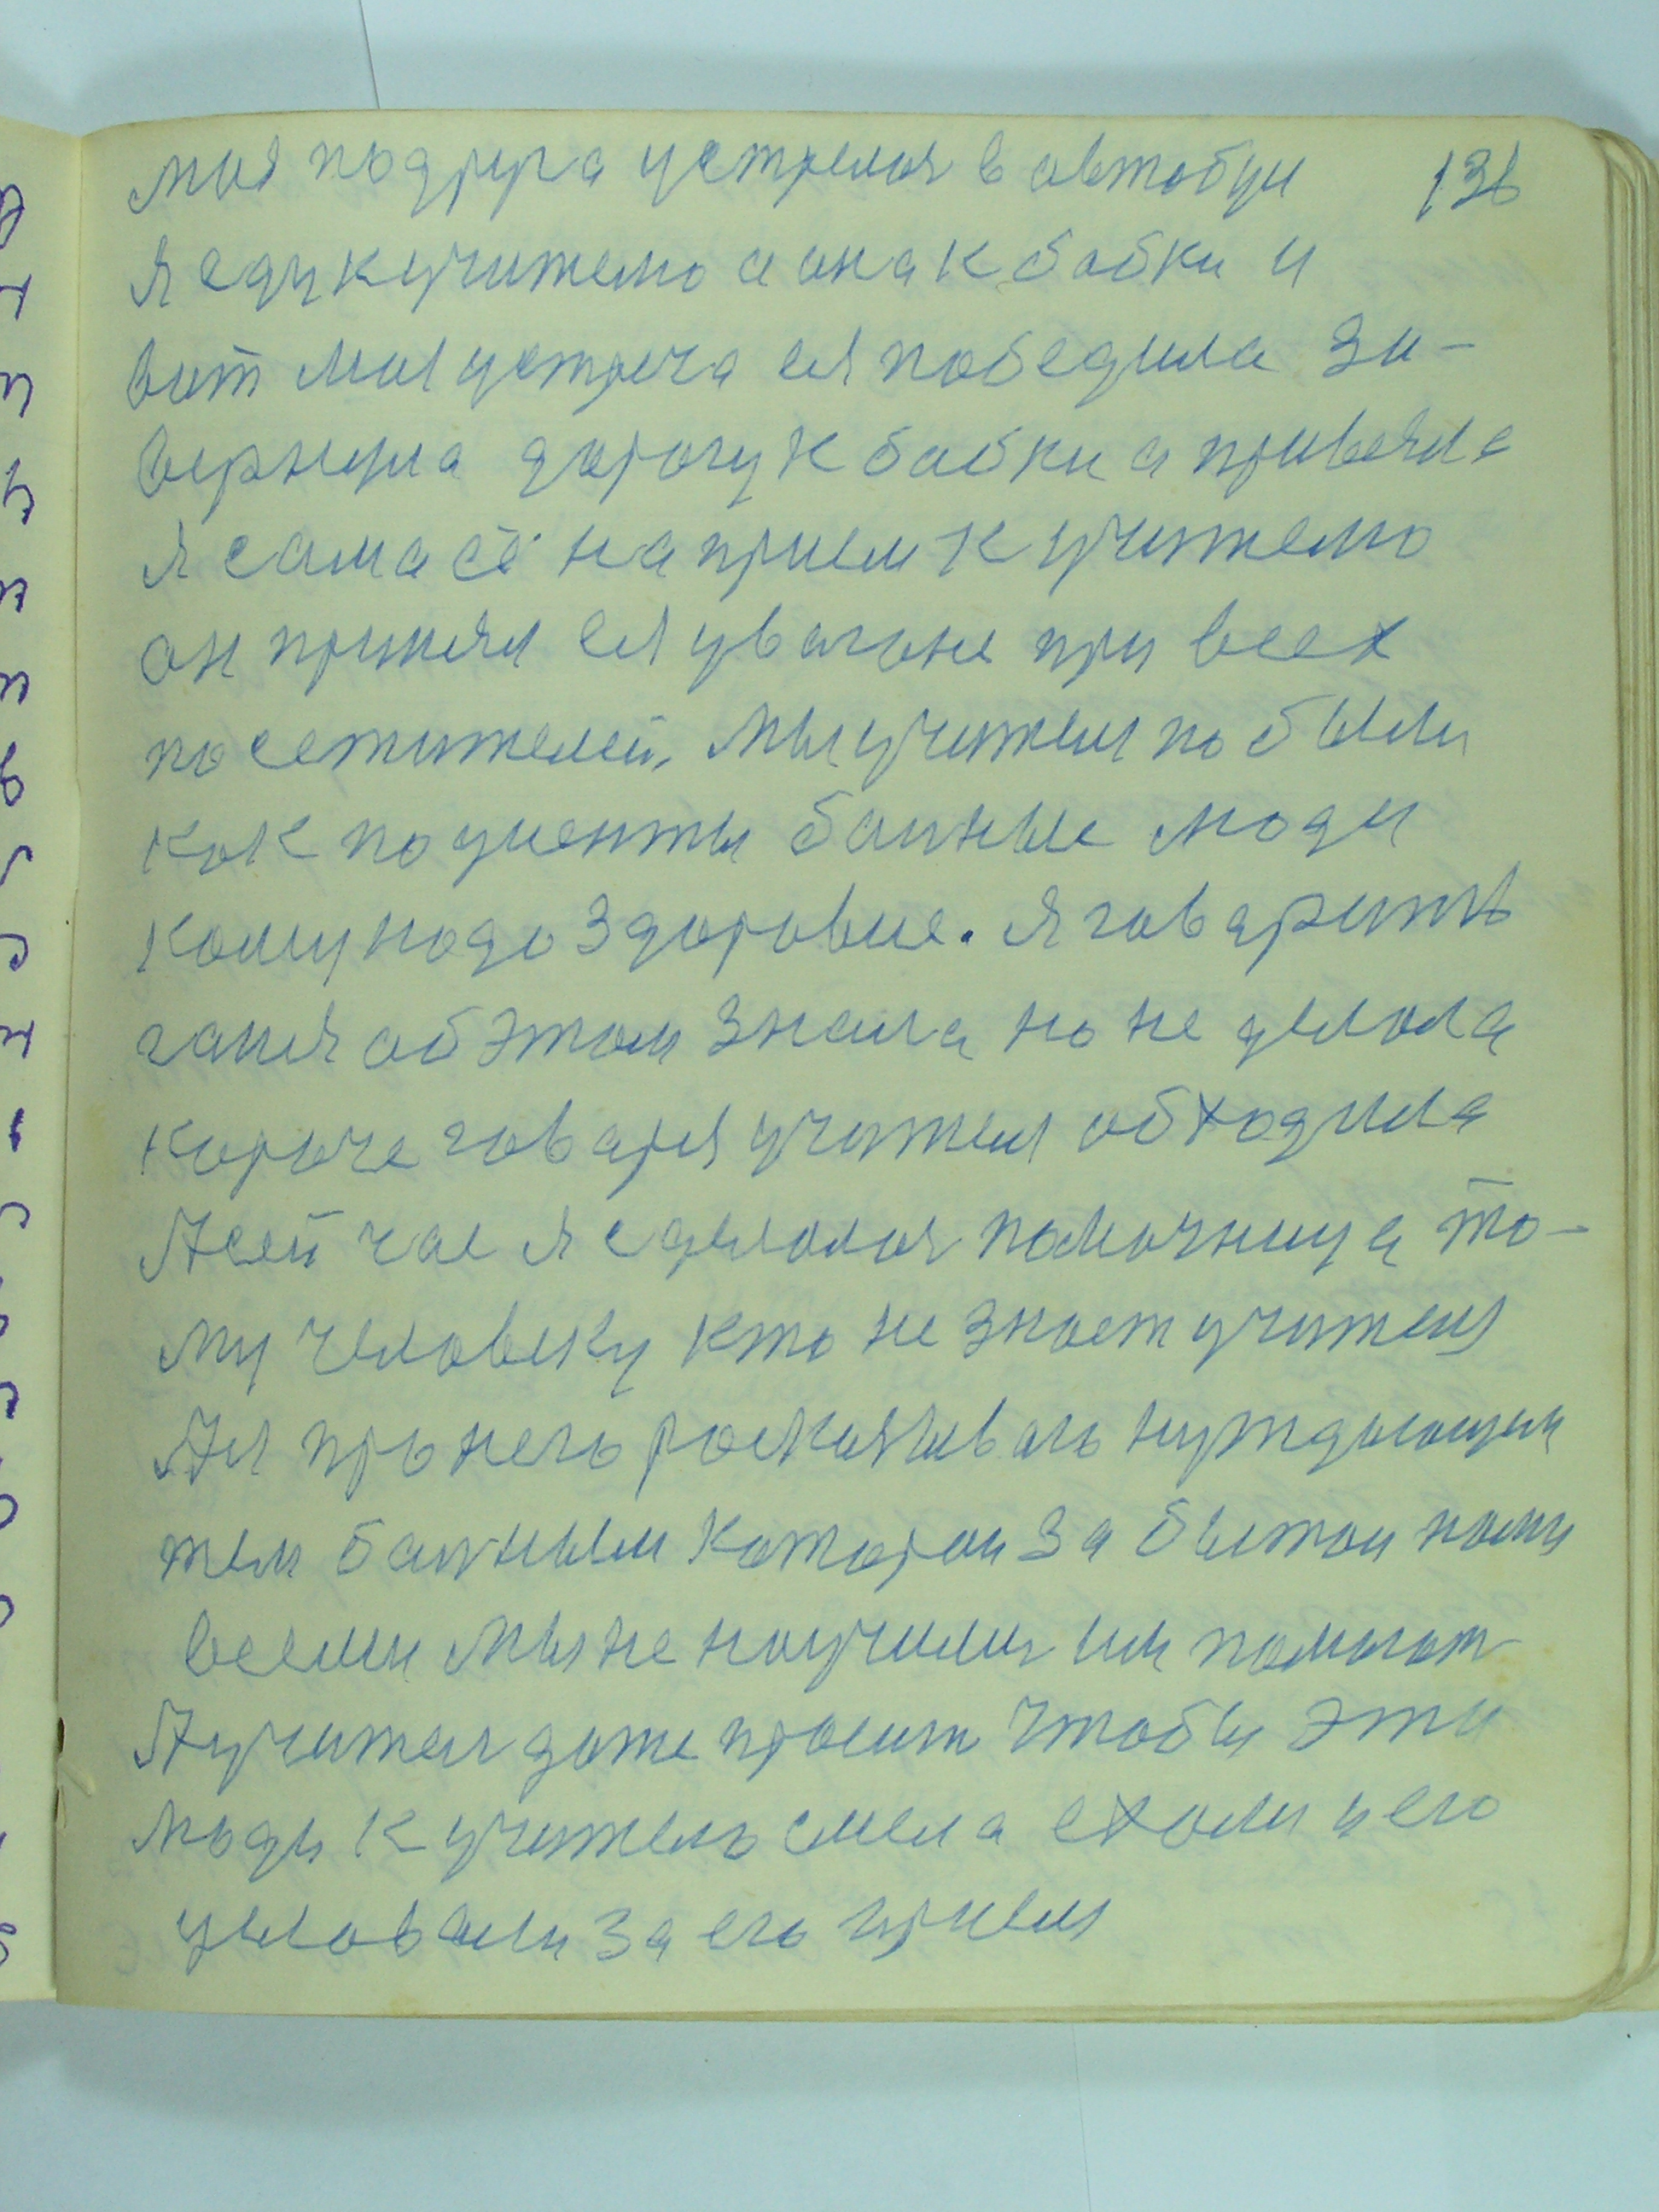 моя подруга устрелоя в автобуи 136
Я еду к учителю а она к бабки и
вот моя устреча ея победила за-
вернула дорогу к бабки а привезла
я сама её на прием к учителю
он принял ея увагоне при всех
посетителей. Мы учителя побыли
как пациенты больные люди
кому надо здоровие. Я говарить
галя об этом знала но не делала
короче говаря учителя обходила
А сейчас я сделалоя помочница то-
му человеку кто не знает учителя
Ая про него нуждающим
тем больным которои забытои нами
всеми мы не научилиь им помогат
А учитель даже просит чтобы эти
люди к учителю смела ехали и его
целовали за его прием